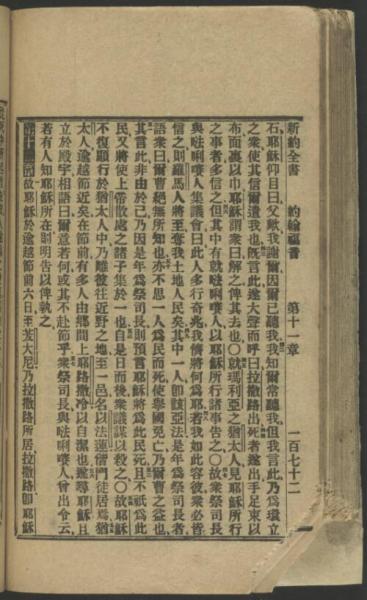 新約全書 約翰福音 第十一章 一百七十二
石耶穌仰目曰父歟我謝爾因爾已聽我我知爾常聽我但我言此乃為環立
之衆使其信爾遣我也既言此遂大聲而呼曰拉撒路出死者遂出手足束以
布面裹以巾耶穌謂衆曰解之俾其去也〇就瑪利亞之猶太人見耶穌所行
之事者多信之但其中有就唎人以耶穌所行諸事告之〇故衆祭司長
與唎人集議會曰此人多行奇兆我儕將何為耶若我如此容彼衆必皆
信之則羅馬人將至奪我土地人民矣其中一人即該亞法是年為祭司長者
語衆曰爾曹絕無所知也亦不思一人為民而死使舉國免亡乃爾曹之益也
其言此非由於己乃因是年為祭司長則預言耶穌將為此民死且不祇為此
民又將使上帝散處之諸子集於一也自是日而後衆議謀以殺之〇故耶穌
不復顯行於猶太人中乃離彼往近野之地至一邑名以法蓮偕門徒居焉猶
太人逾越節近矣在節前有多人由鄉間上耶路撒冷以自潔也遂尋耶穌且
立於殿宇相語曰爾意若何或其不赴節乎衆祭司長與唎人曾出令云
若有人知耶穌所在則明告以俾執之
第十二章 故耶穌於逾越節前六日至大尼乃拉撒路所居拉撒路即耶穌